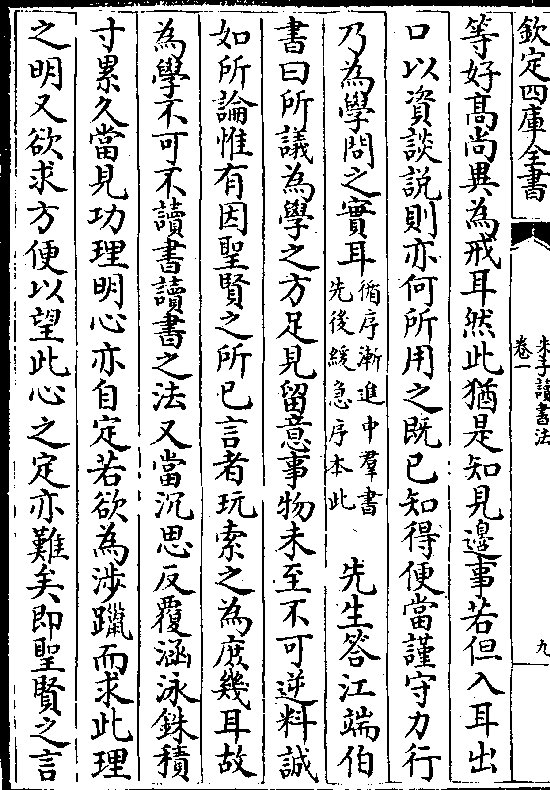 欽定四庫全書
朱子讀書法
卷一
九
等好髙尚異為戒耳然此猶是知見邊事若但入耳出
口以資談說則亦何所用之既已知得便當謹守力行
乃為學問之實耳循序漸進中羣書先後緩急序本此 先生答江端伯
書曰所議為學之方足見留意事物未至不可逆料誠
如所論惟有因聖賢之所已言者玩索之為庶幾耳故
為學不可不讀書讀書之法又當沉思反覆涵泳銖積
寸累久當見功理明心亦自定若欲為涉躐而求此理
之明又欲求方便以望此心之定亦難矣即聖賢之言